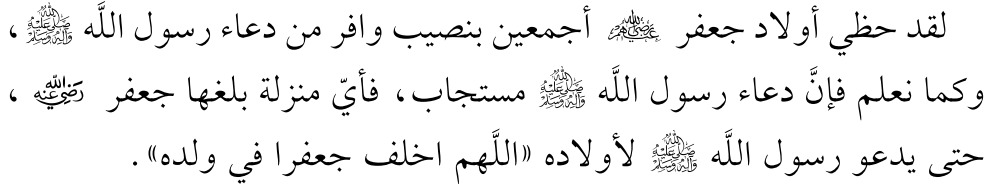 لقد حظي أولاد جعفر رضي الله عنهم أجمعين بنصيب وافر من دعاء رسول اللَّه ﷺ ،
وكما نعلم فإنَّ دعاء رسول اللَّه ﷺ مستجاب، فأيّ منزلة بلغها جعفر رضي الله عنه ،
حتى يدعو رسول اللَّه ﷺ لأولاده «اللَّهم اخلف جعفرا في ولده».